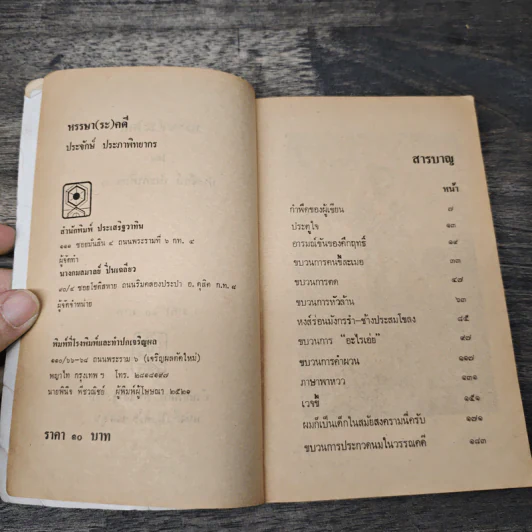 หรรษา(ระ)คดี
ประจักษ์ ประภาพิทยากร
สำนักพิมพ์ ประเสริฐวาทิน
๑๑๑ ซอยมันสิน ๔ ถนนพระรามที่ ๖ กท. ๔
ผู้จัดทำ
นางถมสมาลย์ ปิ่นเฉลียว
๙๐/๔ ถนนริมคลองประปา อ. ดุสิต ก.ท. ๘
ผู้จัดจำหน่าย
พิมพ์ที่โรงพิมพ์และทำปกเจริญผล
๑๑๐/๖๖-๖๘ ถนนพระราม ๖ (เจริญผลตัดใหม่)
พญาไท กรุงเทพ ฯ โทร. ๒๘๑๘๑๙๗
นายพินิจ พืชวณิชย์ ผู้พิมพ์ผู้โฆษณา ๒๕๒๑
ราคา ๑๐ บาท
สารบาญ
หน้า
กำพืดของผู้เขียน ๗
ประตูใจ ๑๓
อารมณ์ขันของคึกฤทธิ์ ๑๙
ขบวนการคนขี้ละเมอ ๓๓
ขบวนการตด ๔๗
ขบวนการหัวล้าน ๖๓
หงส์ร่อนมังกรรำ-ช้างประสมโขลง ๘๕
ขบวนการ "อะไรเอ่ย" ๙๗
ขบวนการคำผวน ๑๑๗
ภาษาพาหวา ๑๓๑
เวจขี้ ๑๕๑
ผมก็เป็นเด็กในสมัยสงครามนี่ครับ ๑๗๑
ขบวนการประกวดนมในวรรณคดี ๑๘๓